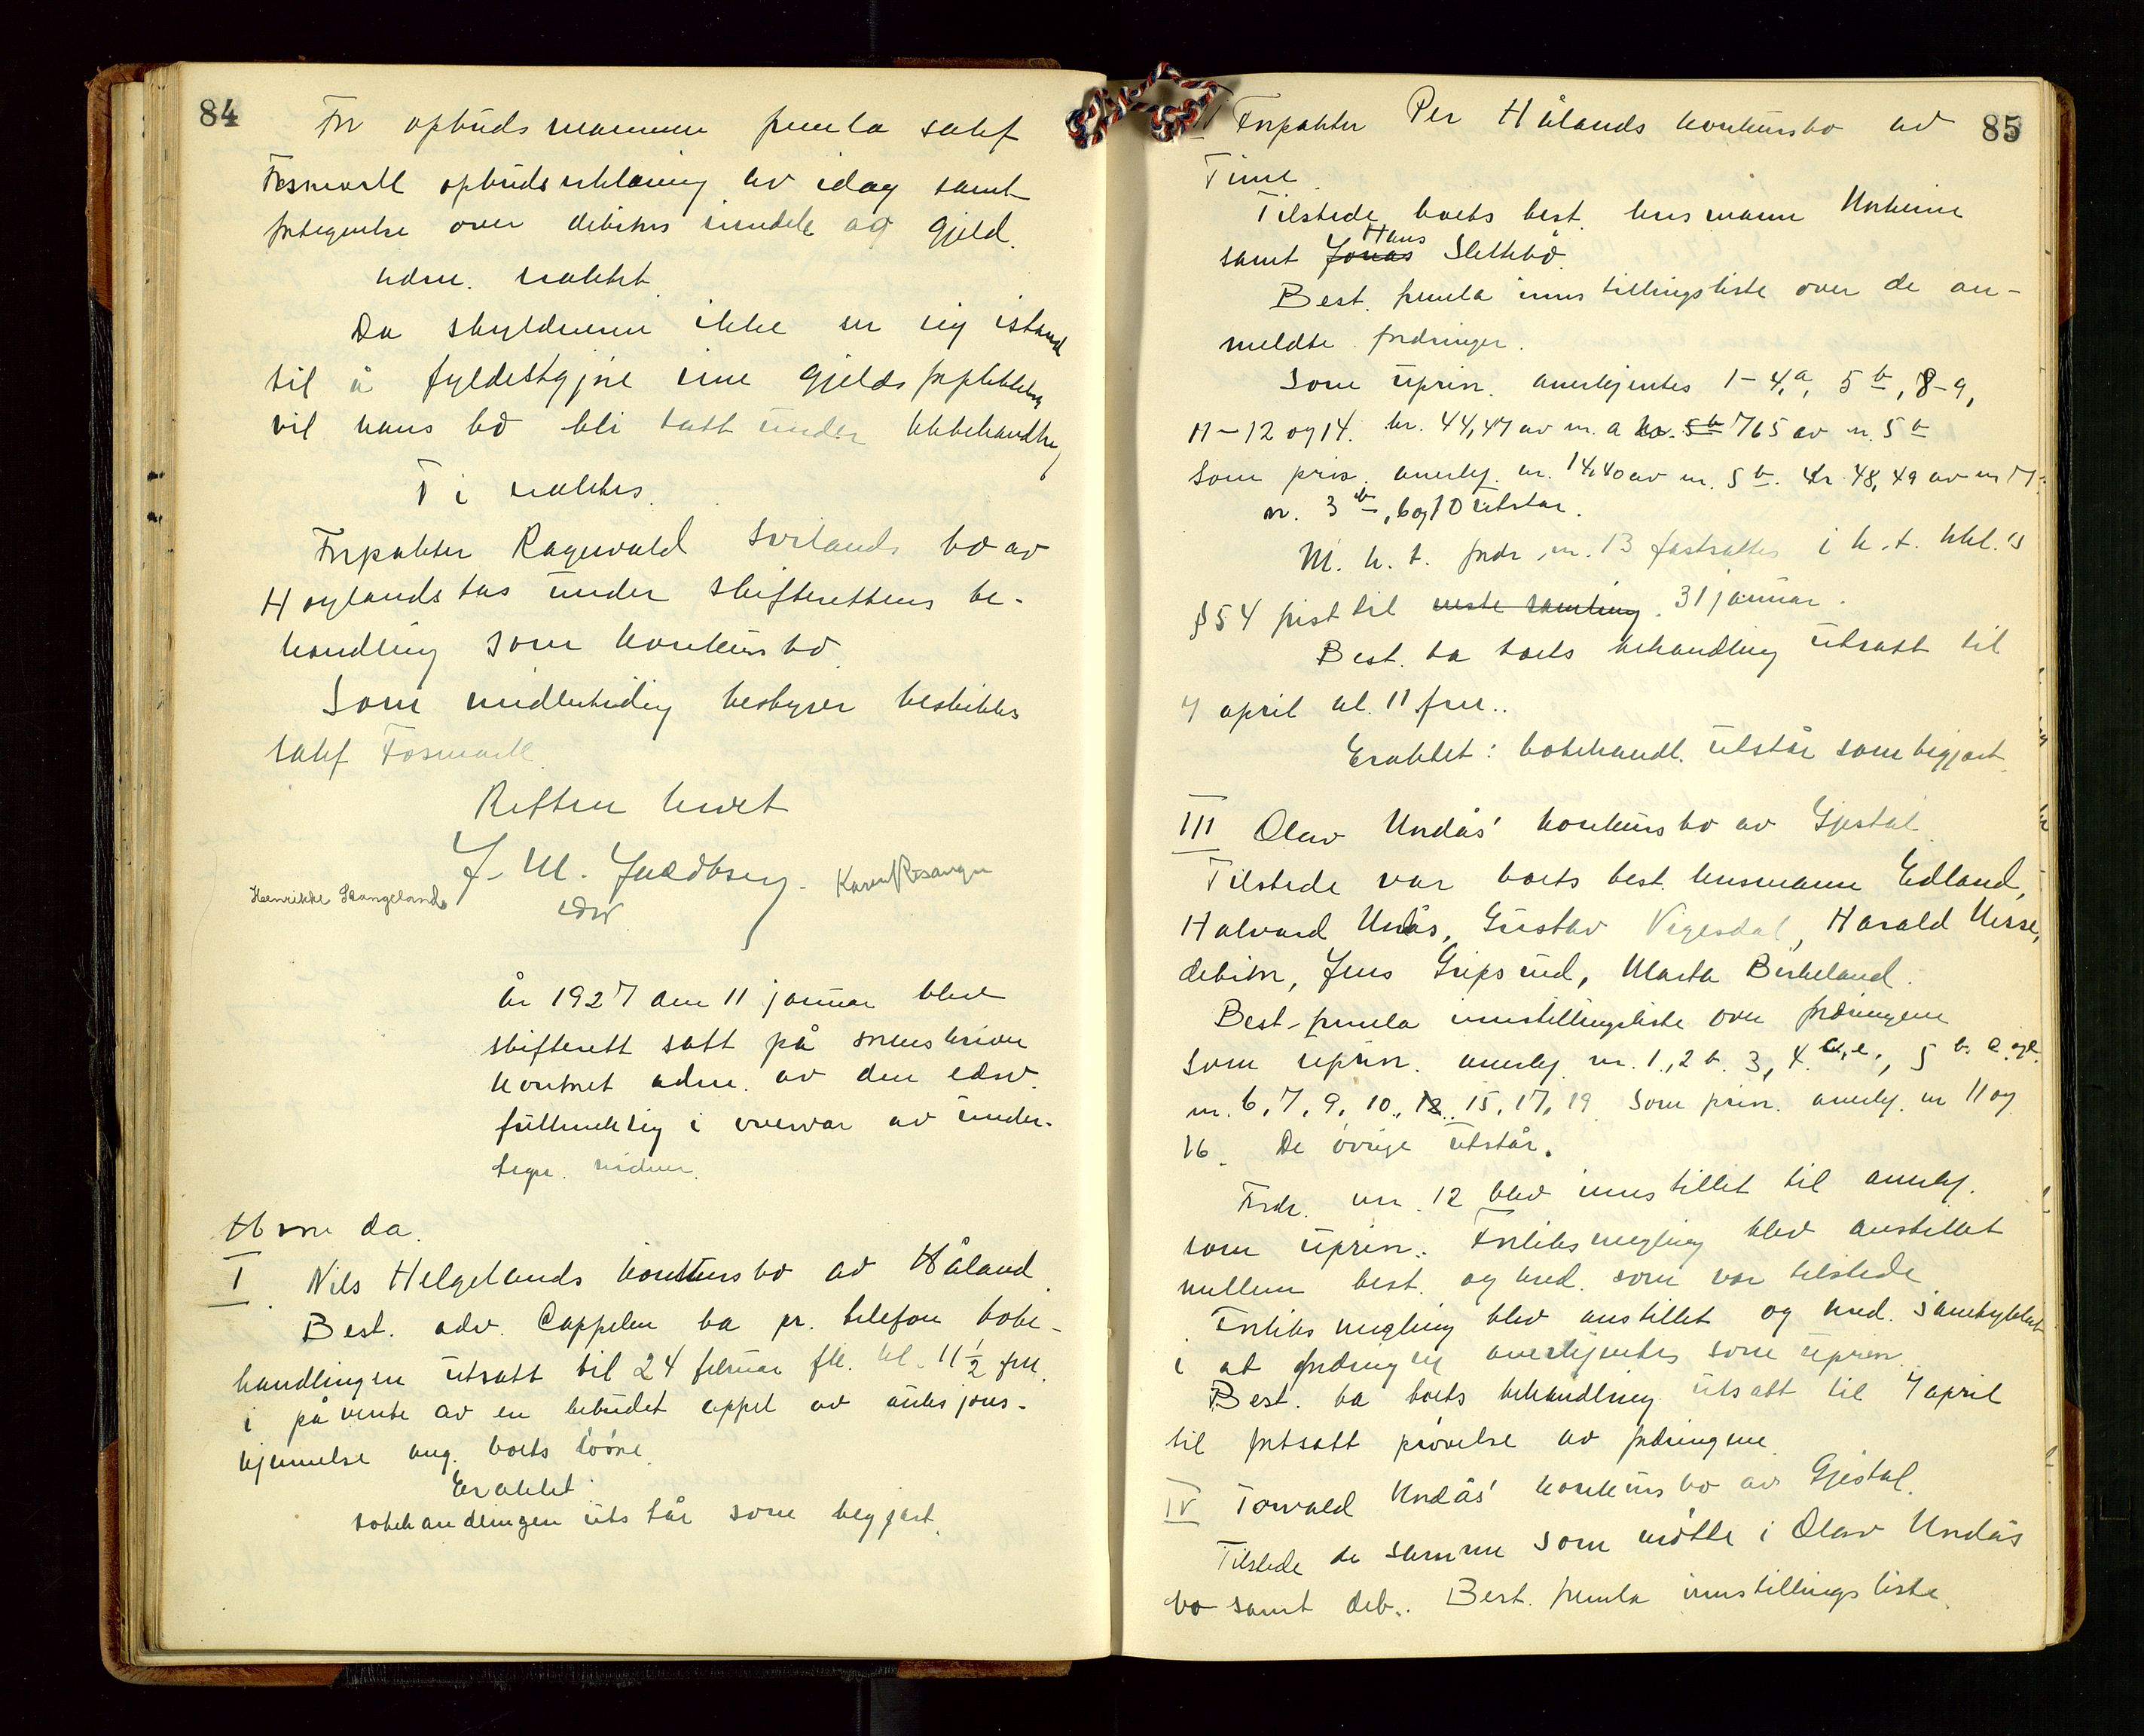 84
For opbudsmannen fremla sakf
Fosmark opbudserklæring av idag samt
fortegnelse over debitors eiendele og gjeld.
Adm. eraktet
Da skyldneren ikke er sig istand
til å fyldestgjøre sine gjeldsforpliktelser
vil hans bo bli tatt under kkbehandling
Ti eraktes
Forpakter Ragnvald Svilands bo av
Høyland tas under skifterettens be-
handling som konkursbo.
Som midlertidig bestyrer beskikkes
sakf Fosmark
Retten hevet
J. M. Jacobsen.
edsv
Henrikke Skangeland
År 1927 den 11 januar blev
skifterett satt på sorenskriver
kontoret adm. av den edsv.
fullmektig i overvær av under-
tegn. vidner.
Hvor da.
I. Nils Helgelands konkursbo av Håland.
Best. adv. Cappelen ba pr. telefon bobe-
handlingen utsatt til 24 februar fk. kl. 11½ fm.
i påvente av en bebudet appel av auksjons-
kjennelse ang. boets løsøre.
Eraktet
bobehandlingen utstår som begjært.
85
II Forpakter Per Hålands konkursbo av
Time.
Tilstede boets best. lensmann Norheim
samt Jonas Hans Slettebø.
Best. fremla innstillingsliste over de an-
meldte fordringer.
Som uprior. anerkjentes 1-4,a, 5 b, 8-9,
11-12 og 14. kr. 44,47 av nr. a kr. 5 b 765 av nr. 5 b
Som prior. anerkj. nr. 14,40 av nr. 5 b. kr 48,49 av nr 7
nr. 3 b, 6 og 10 utstår.
M. h. t. fordr. nr. 13 fastsattes i h. t. kkl.'s
§ 54 frist til neste samling. 31 januar.
Best. ba boets behandling utsatt til
4 april kl. 11 fm..
Eraktet: bobehandl. utstår som begjært.
III Olav Undås' konkursbo av Gjestal.
Tilstede var boets best. lensmann Edland,
Halvard Undås, Gustav Vigesdal, Harald Nesse,
debitor, Jens Gripsrud, Marta Birkeland.
Best. fremla innstillingsliste over fordringene
Som uprior. anerkj. nr. 1, 2 b. 3, 4. a, e, 5 b. c. og e.
nr. 6, 7, 9, 10, 12. 15, 17, 19 Som prior. anerkj. nr 11 og
16. De øvrige utstår.
Fordr. nr. 12 blev innstillet til anerkj.
som uprior. Forliksmegling blev anstillet
mellem best. og kred. som var tilstede
Forliksmegling blev anstillet og kred. samtykket
i at fordringen anerkjentes som uprior.
Best. ba boets behandling utsatt til 4 april
til fortsatt prøvelse av fordringene.
IV Torvald Undås' konkursbo av Gjestal.
Tilstede de samme som møtte i Olav Undås
bo samt deb.. Best. fremla innstillingsliste.